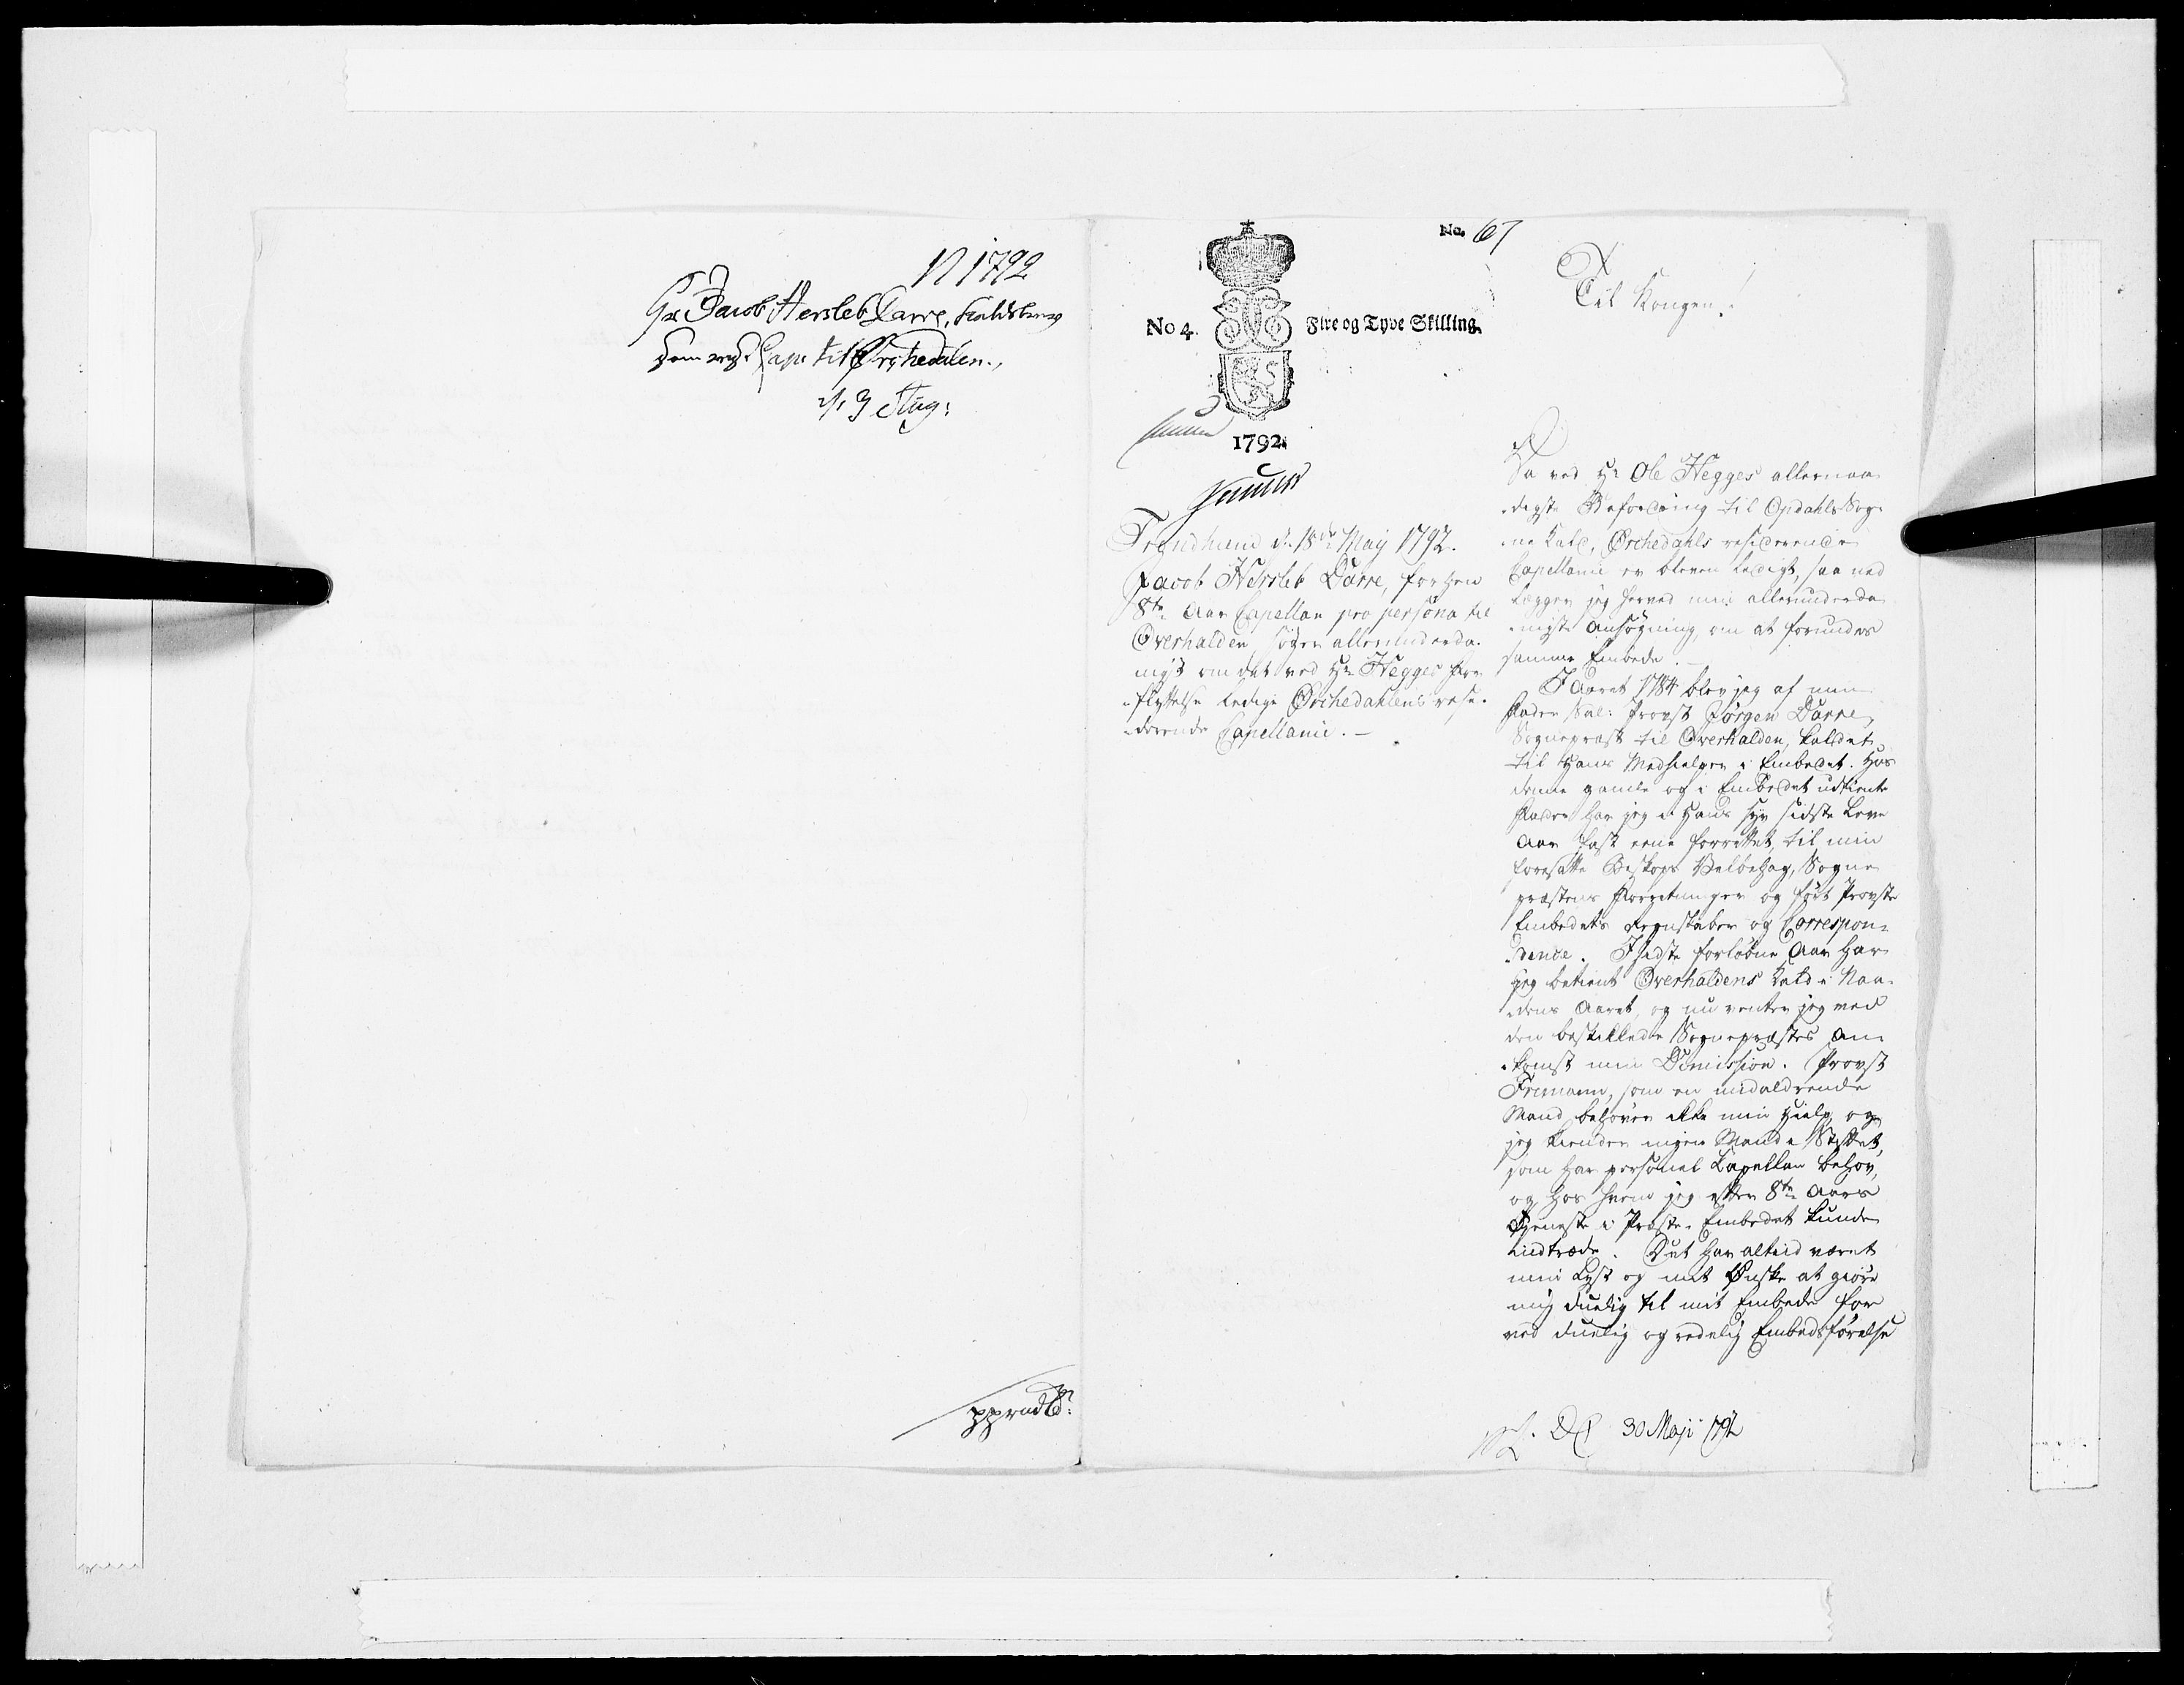 N 1792
Hr Jacob Hersleb Darre, Kaldsbrev
som res. Cap. til Ørchedalen.
d. 9 Aug:
No. 67
No 4. Fire og Tyve Skilling.
1792.
Trondhiem d. 18de Maij 1792.
Jacob Hersleb Darre, forhen
8te Aar Capellan pro persona til
Overhalden, søger allerunderda-
nigst om det ved Hr Hegges For-
flyttelse ledige Ørchedahlens resi-
derende Capellanie.
Til Kongen!
Da ved Hr Ole Hegges allernaa-
digste Befordring til Opdahls Sog-
ne Kald, Ørchedahls residerende
Capellanie er bleven ledigt, saa ned
lægger jeg herved min allerunderda-
nigste Ansøgning, om at forundes
samme Embede.
I Aaret 1784 blev jeg af min
Fader Sal: Provst Jørgen Darre,
Sognepræst til Overhalden, kaldet
til Hans Medhielper i Embedet. Hos
denne gamle og i Embedet udtiente
Fader har jeg i Hans Syv sidste Leve
Aar fast ene forrettet, til min
foresatte Biskops Velbehag, Sogne
præstens Forretninger og ført Provste
Embedets Regnskaber og Correspon-
dence. I sidste forløbne Aar har
jeg betient Overhaldens Kald i Naa-
dens Aaret, og nu venter jeg med
den beskikkede Sognepræstes An-
komst min Dimission. Provst
Frimann, som en midaldrende
Mand behøver ikke min Hielp og
jeg kiender ingen Mand i Stiftet,
som har personel Capellan behov,
og hos hvem jeg efter 8te Aars
Tjeneste i Præste-Embedet kunde
indtræde. Det har altiid været
min Lyst og mit Ønske at giøre
mig duelig til mit Embede for
ved duelig og redelig Embedsførelse
30 Maji 1792